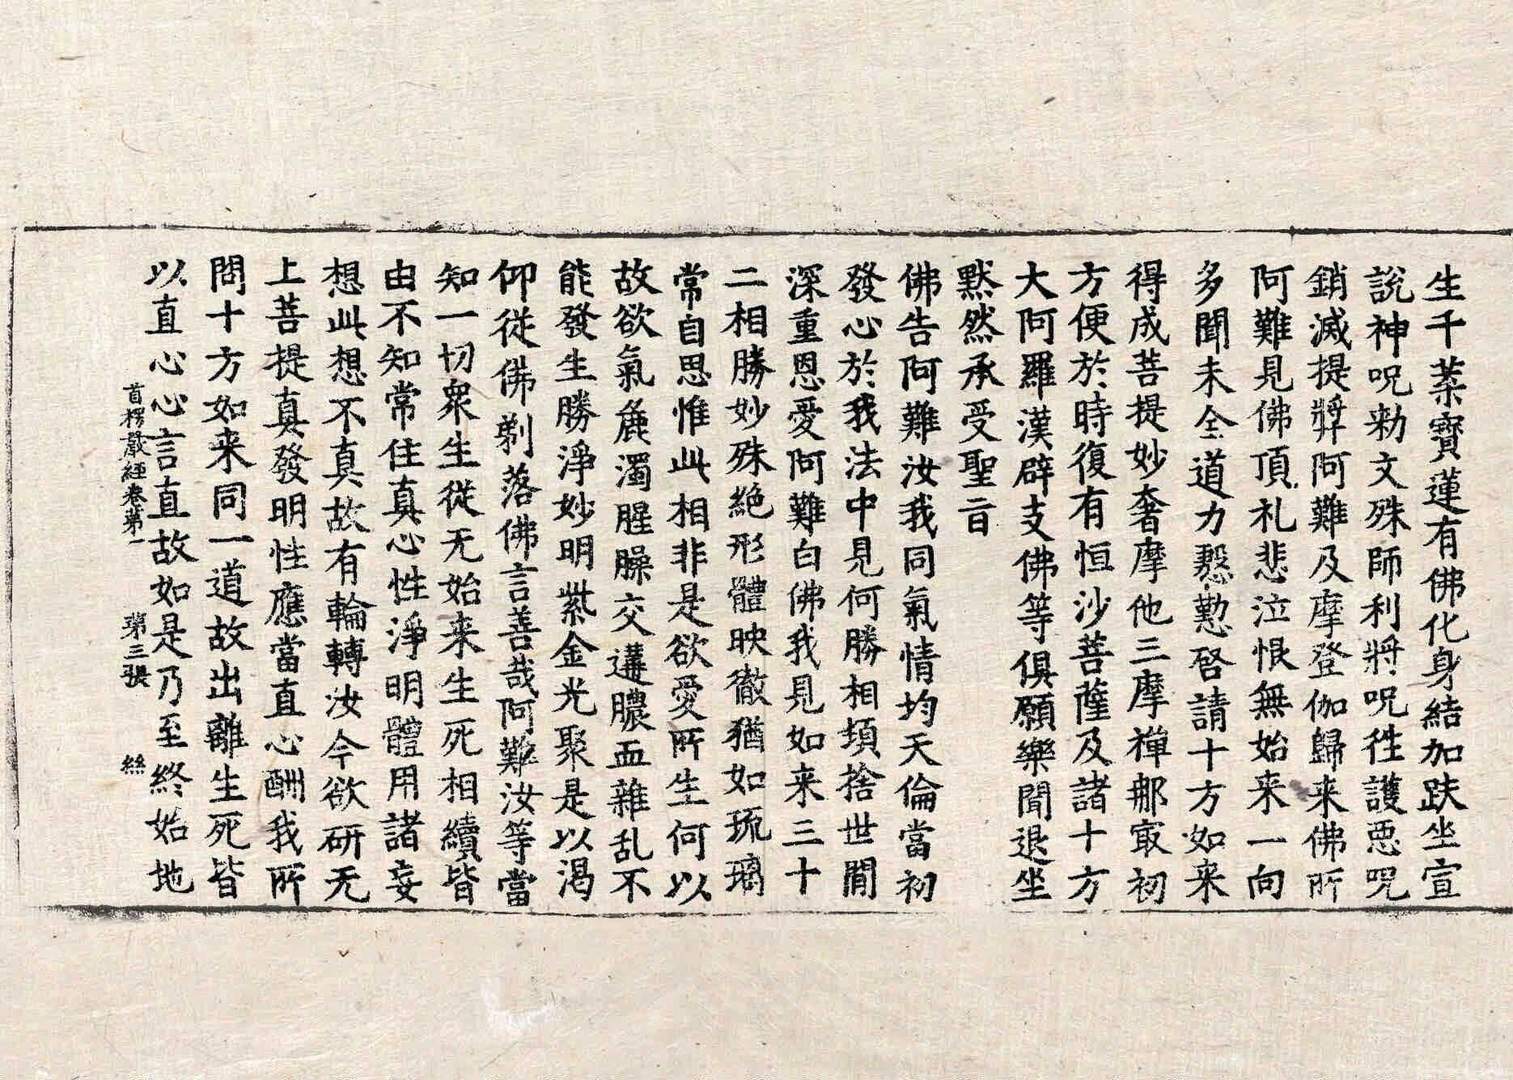 生千葉寶蓮有佛化身結加趺坐宣
說神呪勑文殊師利將呪徃護惡呪
銷滅提弉阿難及摩登伽歸来佛所
阿難見佛頂礼悲泣恨無始来一向
多聞未全道力慇懃啓請十方如来
得成菩提妙奢摩他三摩禪那㝡初
方便於時復有恒沙菩薩及諸十方
大阿羅漢辟支佛等俱願樂聞退坐
黙然承受聖旨
佛告阿難汝我同氣情均天倫當初
發心於我法中見何勝相頓捨世間
深重恩愛阿難白佛我見如来三十
二相勝妙殊絶形體映徹猶如琉璃
常自思惟此相非是欲愛所生何以
故欲氣麁濁腥臊交遘膿血雜乱不
能發生勝淨妙明紫金光聚是以渴
仰從佛剃落佛言善哉阿難汝等當
知一切衆生從无始来生死相續皆
由不知常住真心性淨明體用諸妄
想此想不真故有輪轉汝今欲研无
上菩提真發明性應當直心酬我所
問十方如来同一道故出離生死皆
以直心心言直故如是乃至終始地
首楞嚴經卷第一 第三張 絲